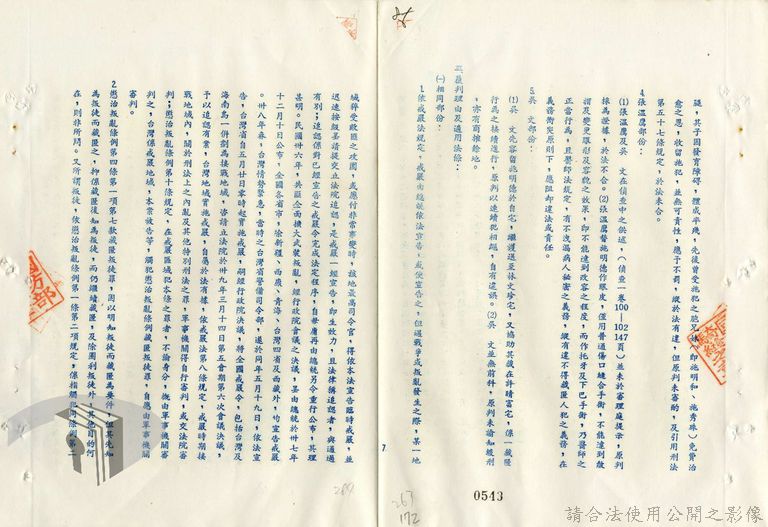 隨，其子因發育障礙，體成半殘，先後曾受施犯之胞兄妹（即施明和、施秀珠）免費治
愈之恩，收留施犯，並無可責性，應予不罰，縱於法有違，但原判未審酌，及引用刑法
第五十七條規定，於法未合。
4.張溫鷹部份：
⑴張溫鷹及吳　文在偵查中之供述，（偵查一卷100—102、147頁）並未於審理庭提示，原判
採為證據，於法不合。⑵張溫鷹替施明德作眼皮，僅用普通傷口縫合手術，不能達到微
謂及變更環形及容貌之效果，即不能達到改容之程度，而作拔牙及下巴手術，乃醫師之
正當行為，且醫師法規定，有不洩漏病人秘密之義務，縱有違不得藏匿人犯之義務，在
義務衝突原則下，應阻卻違法或責任。
5.吳　文部份：
⑴吳　文先容留施明德於自宅，繼護送至林文珍宅，又協助其藏在許晴富宅，係一藏匿
行為之接續進行，原判以連續犯相繩，自有違誤。⑵吳　文並無前科，原判未諭知緩刑
，亦有商榷餘地。
三、原判理由及適用法條：
㈠相同部份：
1.依戒嚴法規定，戒嚴由總統依法宣告，或使宣告之，但遇戰爭或叛亂發生之際，某一地
7
域猝受敵匪之攻圍，或應付非常事變時，該地最高司令官，得依本法宣告臨時戒嚴，並
迅速按級呈請提交立法院追認，是戒嚴一經宣告，即生效力，且法律稱追認者，與通過
有別；追認係對已經宣告之戒嚴令完成法定程序，自毋庸再由總統另令重行公布，其理
甚明。民國卅六年，共匪全面擴大武裝叛亂，經行政院會議之決議，呈由總統於卅七年
十二月十日公布，全國各省市，除新疆、西康、青海、台灣四省及西藏外，均宣告戒嚴
。卅八年春，台灣情勢緊急，當時之台灣省警備司令部，遂於同年五月十九日，依法宣
告，台灣省自五月廿日零時起實施戒嚴，嗣經行政院決議，將全國戒嚴令，包括台灣及
海南島一併劃為接戰地域，咨請立法院於卅九年三月十四日第五會期第六次會議決議，
予以追認有案，台灣地域實施戒嚴，自屬於法有據，依戒嚴法第八條規定，戒嚴時期接
戰地域內，關於刑法上之內亂及其他特別刑法之罪，軍事機關得自行審判，或交法院審
判；懲治叛亂條例第十條規定，在戒嚴區域犯本條之罪者，不論身分，概由軍事機關審
判之，台灣係戒嚴地域，本案被告等，觸犯懲治叛亂條例藏匿叛徒罪，自應由軍事機關
審判。
2.懲治叛亂條例第四條第一項第七款藏匿叛徒罪，固以明知叛徒而藏匿為要件，但其先知
為叛徒而藏匿之，抑係藏匿後知為叛徒，而仍繼續藏匿，及除圖利叛徒外，其他目的何
在，則非所問。又所謂叛徒，依懲治叛亂條例第一條第二項規定，係指觸犯同條例第二
0543
267
172
請合法使用公開之影像